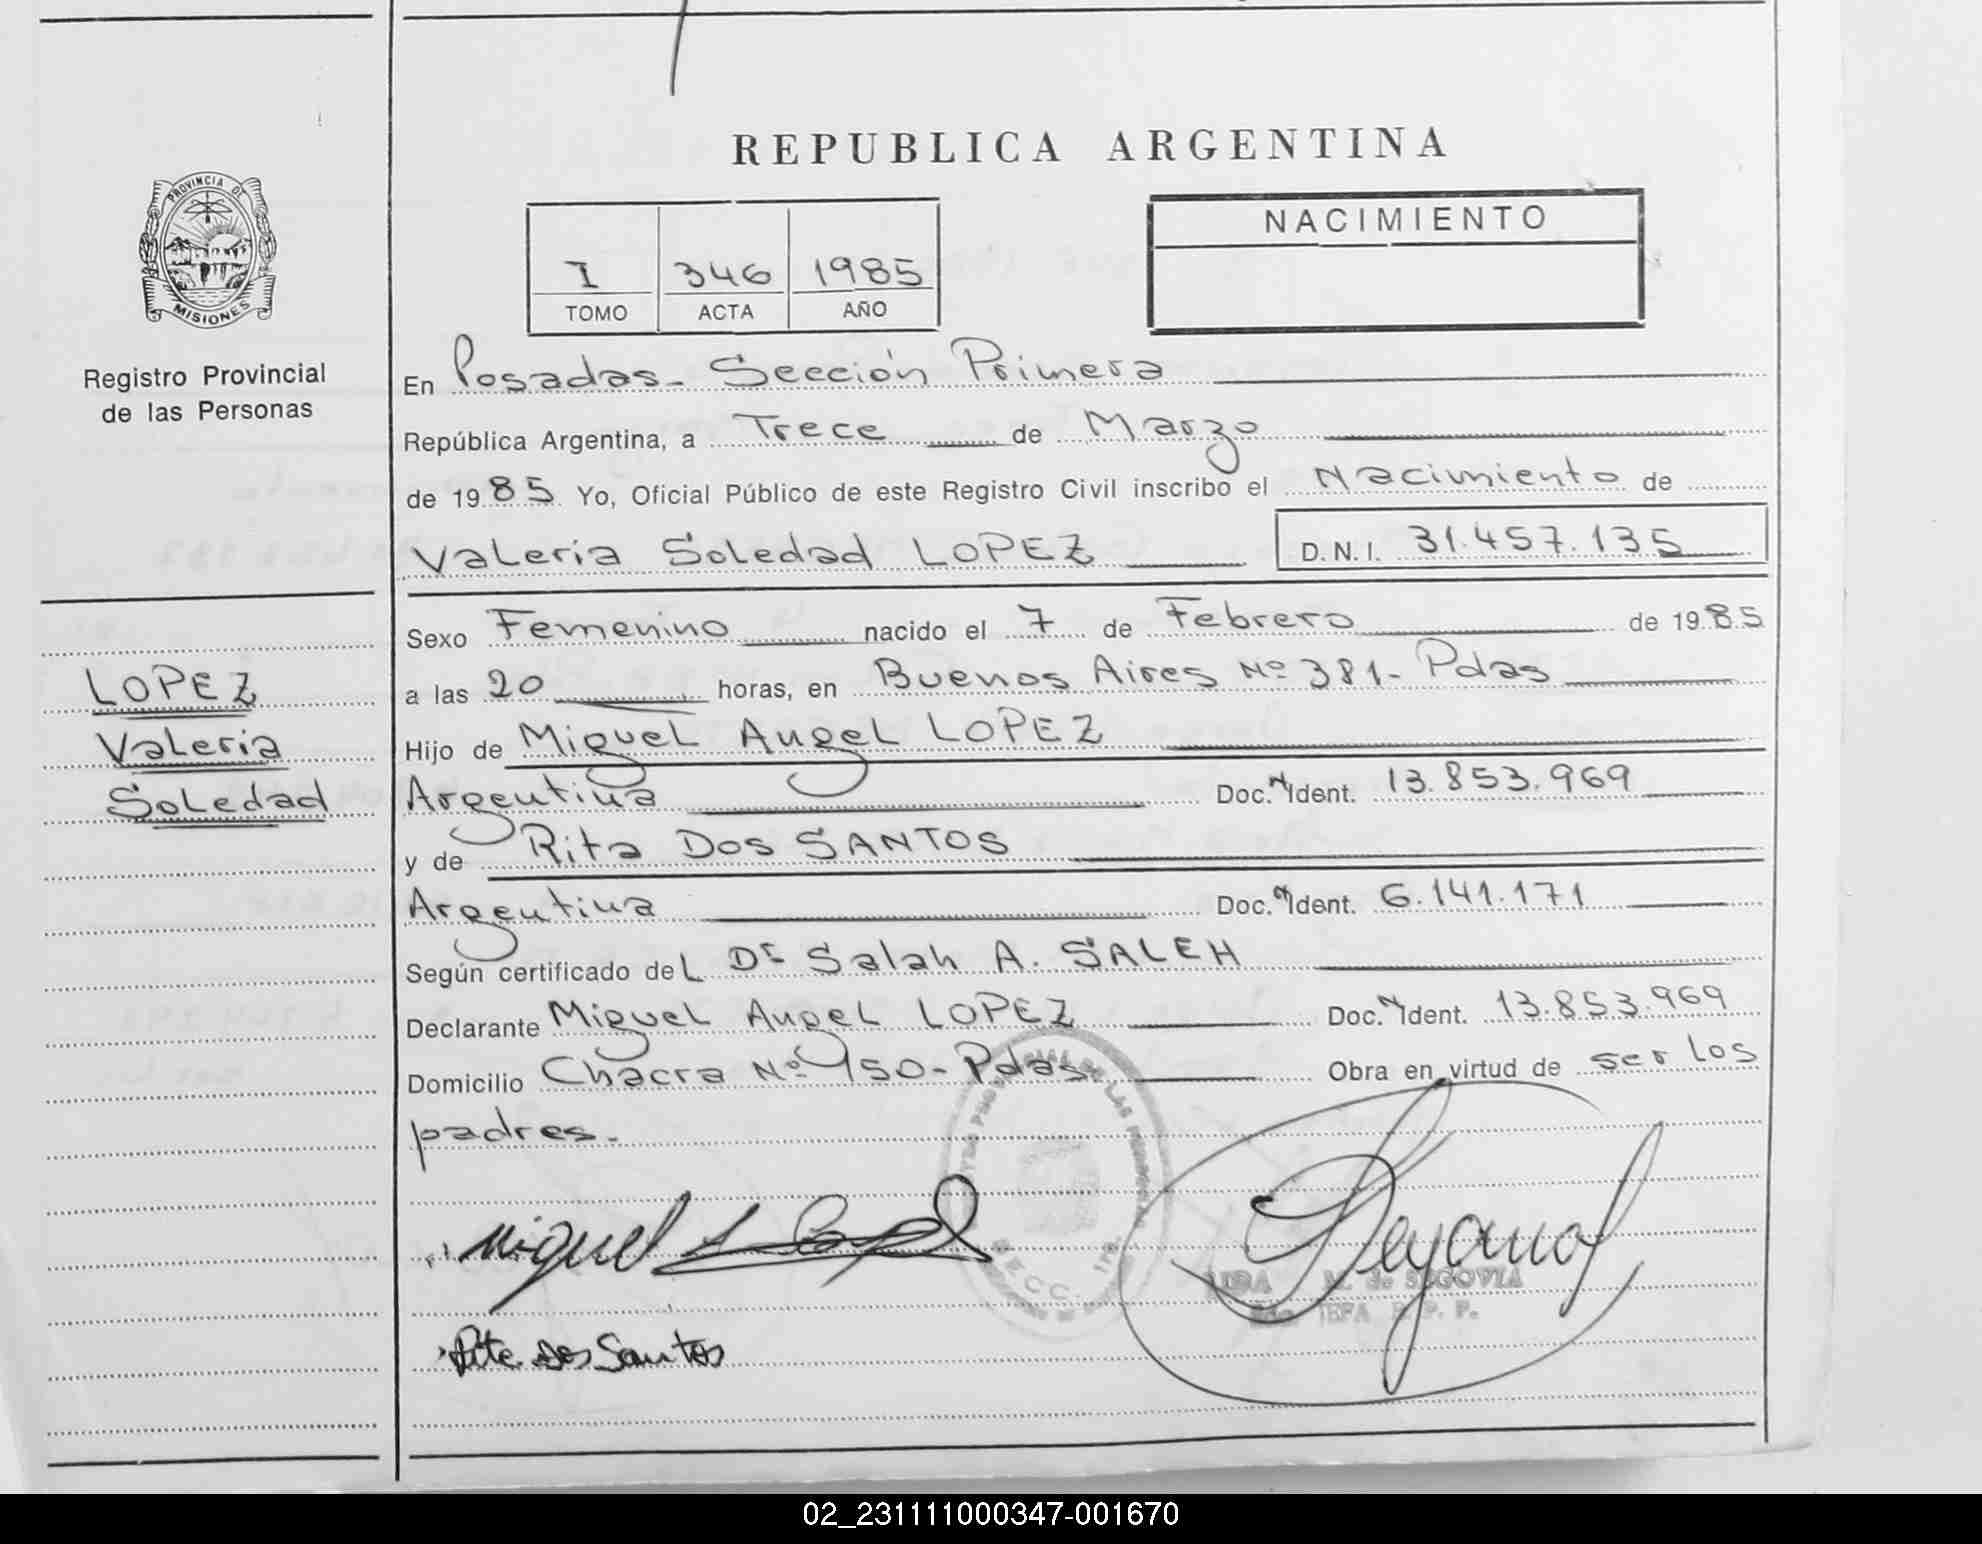 REPUBLICA ARGENTINA
PROVINCIA DE
MISIONES
Registro Provincial
de las Personas
I 346 1985
TOMO ACTA AÑO
NACIMIENTO
En Posadas - Sección Primera
República Argentina, a Trece de Marzo
de 1985. Yo, Oficial Público de este Registro Civil inscribo el Nacimiento de
Valeria Soledad LOPEZ D.N.I. 31.457.135
Sexo Femenino nacido el 7 de Febrero de 1985
a las 20 horas, en Buenos Aires Nº 381 - Pdas
Hijo de Miguel Angel LOPEZ
Argentina Doc. N Ident. 13.853.969
y de Rita Dos SANTOS
Argentina Doc. N Ident. 6.141.171
Según certificado del Dr Salah A. SALEH
Declarante Miguel Angel LOPEZ Doc. N Ident. 13.853.969
Domicilio Chacra Nº 150 - Pdas Obra en virtud de ser los
padres.
LOPEZ
Valeria
Soledad
Miguel A Lopez
M. de SEGOVIA
Rita Dos Santos
02_231111000347-001670